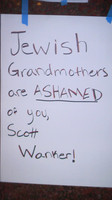 Jewish
Grandmothers
are ASHAMED
of you,
Scott
Warker!